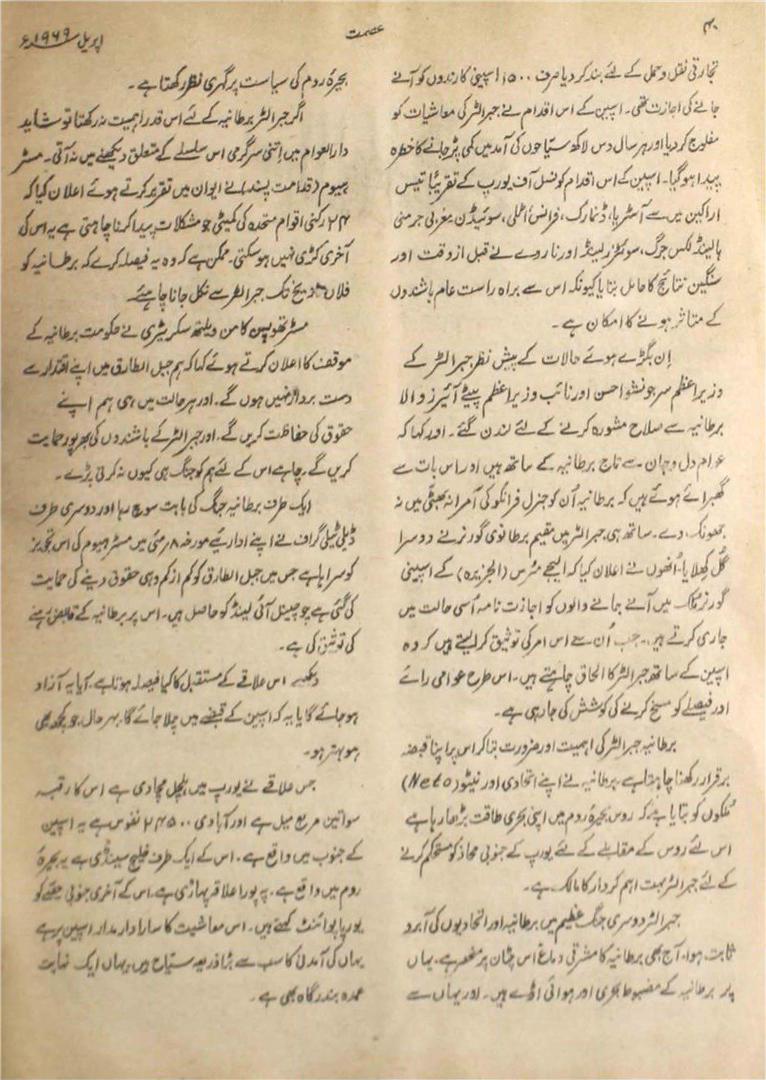 ۴۰
عصمت
اپریل ۱۹۶۹ء
تجارتی نقل و حمل کے لئے بند کر دیا صرف ۱۵۰۰ اسپینی کارندوں کو آنے
جانے کی اجازت تھی۔ اسپین کے اس اقدام نے جبرالٹر کی معاشیات کو
مفلوج کر دیا اور ہر سال دس لاکھ سیّاحوں کی آمد میں کمی پڑ جانے کا خطرہ
پیدا ہوگیا۔ اسپین کے اس اقدام کو کونسل آف یورپ کے تقریبًا تیس
اراکین میں سے آسٹریا، ڈنمارک، فرانس، اٹلی، سوئیڈن مغربی جرمنی
ہالینڈ لکس جرگ، سوئٹزرلینڈ اور ناروے نے قبل از وقت اور
سنگین نتائج کا حامل بتایا کیونکہ اس سے براہ راست عام باشندوں
کے متاثر ہونے کا امکان ہے۔
اِن بگڑے ہوئے حالات کے پیش نظر جبرالٹر کے
وزیر اعظم سر جونشوا حسن اور نائب وزیر اعظم پیٹے آئیزولا
برطانیہ سے صلاح مشورہ کرنے کے لئے لندن گئے۔ اور کہا کہ
عوام دل و جان سے تاج برطانیہ کے ساتھ ہیں اور اس بات سے
گھبرائے ہوئے ہیں کہ برطانیہ اُن کو جنرل فرانکو کی آمرانہ بھٹی میں نہ
جھونک دے۔ ساتھ ہی جبرالٹر میں مقیم برطانوی گورنر نے دوسرا
گُل کھِلایا، اُنھوں نے اعلان کیا کہ ایجے مرس (الجزیرہ) کے اسپینی
گورنر ملک میں آنے جانے والوں کو اجازت نامہ اُسی حالت میں
جاری کرتے ہیں۔ جب اُن سے اس امر کی توثیق کرا لیتے ہیں کہ وہ
اسپین کے ساتھ جبرالٹر کا الحاق چاہتے ہیں۔ اس طرح عوامی رائے
اور فیصلے کو مسخ کرنے کی کوشش کی جا رہی ہے۔
برطانیہ جبرالٹر کی اہمیت اور ضرورت بتا کر اس پر اپنا قبضہ
برقرار رکھنا چاہتا ہے۔ برطانیہ نے اپنے اتحادی اور نیٹو (Neto)
مُلکوں کو بتایا ہے کہ روس بحیرۂ روم میں اپنی بحری طاقت بڑھا رہا ہے
اس لئے روس کے مقابلے کے لئے یورپ کے جنوبی محاذ کو مستحکم کرنے
کے لئے جبرالٹر بہت اہم کردار کا مالک ہے۔
جبرالٹر دوسری جنگ عظیم میں برطانیہ اور اتحادیوں کی آبرو
ثابت ہوا۔ آج بھی برطانیہ کا مشرقی دماغ اس چٹان پر منحصر ہے۔ یہاں
پر برطانیہ کے مضبوط بحری اور ہوائی اڈے ہیں۔ اور یہاں سے
بحیرۂ روم کی سیاست پر گہری نظر رکھتا ہے۔
اگر جبرالٹر برطانیہ کے لئے اس قدر اہمیت نہ رکھتا تو شاید
دار العوام میں اِتنی سرگرمی اس سلسلے کے متعلق دیکھنے میں نہ آتی۔ مسٹر
ہیوم (قدامت پسند) نے ایوان میں تقریر کرتے ہوئے اعلان کیا کہ
۲۴ رکنی اقوام متحدہ کی کمیٹی جو مشکلات پیدا کرنا چاہتی ہے یہ اس کی
آخری کڑی نہیں ہوسکتی۔ ممکن ہے کہ وہ یہ فیصلہ کرے کہ برطانیہ کو
فلاں تاریخ تک جبرالٹر سے نکل جانا چاہئے۔
مسٹر تھومپسن کامن ویلتھ سکریٹری نے حکومت برطانیہ کے
موقف کا اعلان کرتے ہوئے کہا کہ ہم جبل الطارق میں اپنے اقتدار سے
دست بردار نہیں ہوں گے۔ اور ہر حالت میں ہی ہم اپنے
حقوق کی حفاظت کریں گے۔ اور جبرالٹر کے باشندوں کی بھرپور حمایت
کریں گے۔ چاہے اس کے لئے ہم کو جنگ ہی کیوں نہ کرنی پڑے۔
ایک طرف برطانیہ جنگ کی بابت سوچ رہا اور دوسری طرف
ڈیلی ٹیلی گراف نے اپنے اداریئے مورخہ ۸ مئی میں مسٹر ہیوم کی اس تجویز
کو سراہا ہے جس میں جبل الطارق کو کم از کم وہی حقوق دینے کی حمایت
کی گئی ہے جو چینل آئی لینڈ کو حاصل ہیں۔ اس پر برطانیہ کے قابض رہنے
کی توثیق کی ہے۔
دیکھیے اس علاقے کے مستقبل کا کیا فیصلہ ہوتا ہے۔ آیا یہ آزاد
ہو جائے گا یا یہ کہ اسپین کے قبضے میں چلا جائے گا، بہر حال، جو کچھ بھی
ہو بہتر ہو۔
جس علاقے نے یورپ میں ہلچل مچا دی ہے اس کا رقبہ
سوا تین مربع میل ہے اور آبادی ۲۴۵۰۰ نفوس ہے یہ اسپین
کے جنوب میں واقع ہے۔ اس کے ایک طرف خلیج سینڈی ہے یہ بحیرۂ
روم میں واقع ہے۔ یہ پورا علاقہ پہاڑی ہے۔ اس کے آخری جنوبی حصّے کو
یورپا پوائنٹ کہتے ہیں۔ اس معاشیت کا سارا دار مدار اسپین پر ہے
یہاں کی آمدنی کا سب سے بڑا ذریعہ سیّاح ہیں، یہاں ایک نہایت
عمدہ بندرگاہ بھی ہے۔